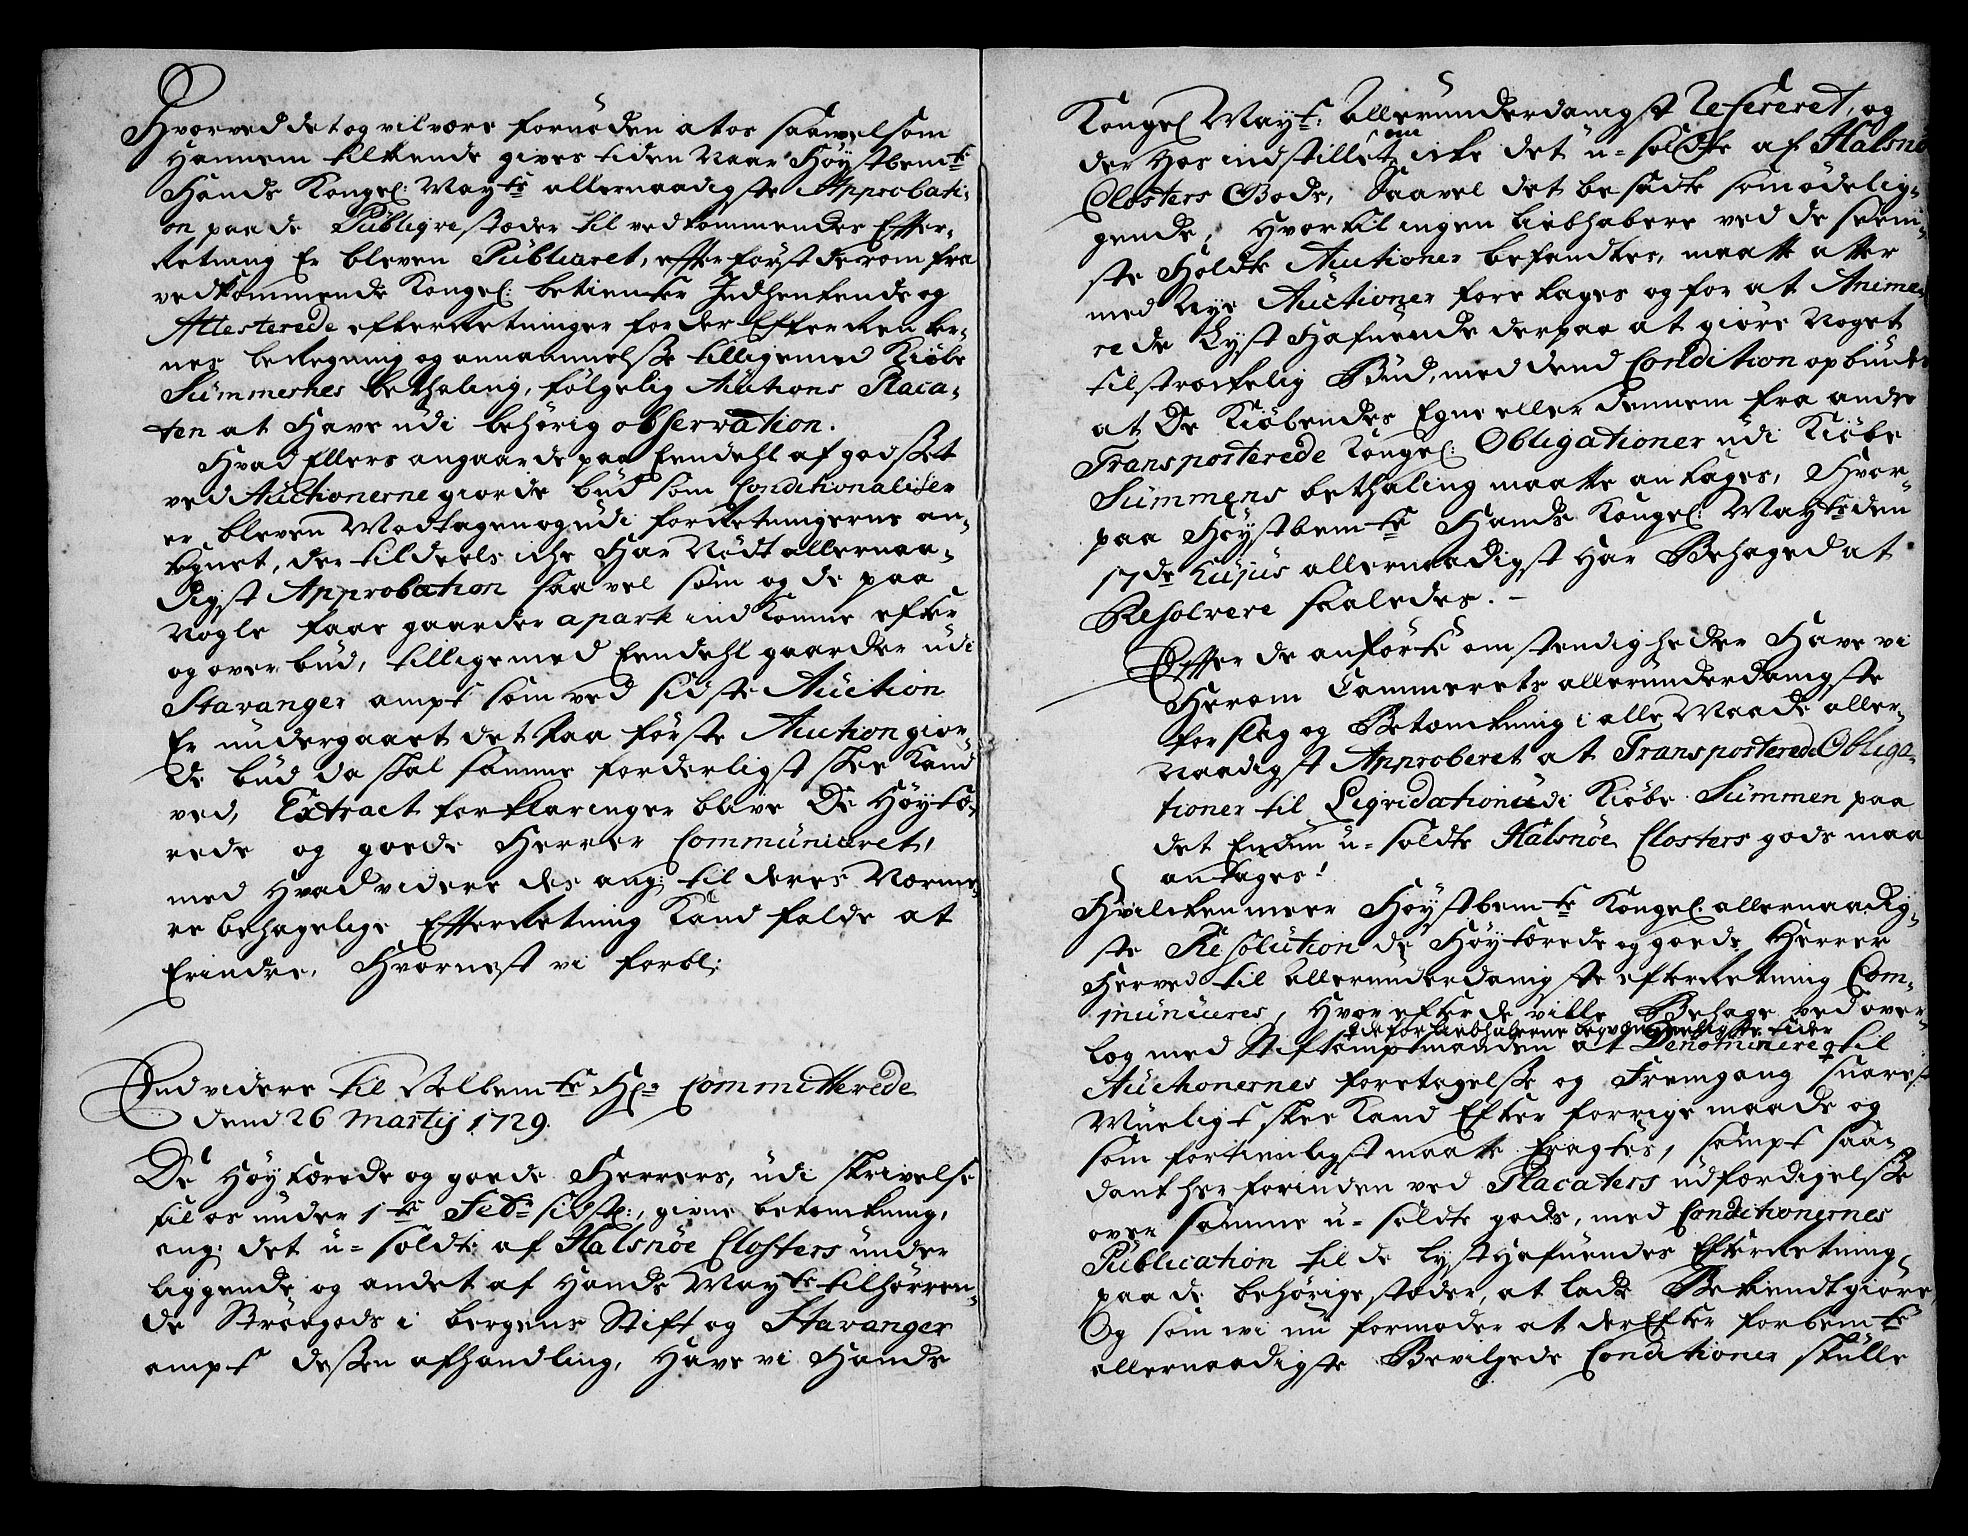 Hvorved det og vil være fornøden at os saavelsom
Hannem tilkende gives tiden naar Høystbemte
Hands Kongel: Mayts allernaadigste Approbati-
on paa de Publiqve stæder til vedkommendes Effter-
retning Er bleven Publiceret, efftersom først derom fra
vedkommende Kongel: betienter Indhentende og
Attesterede efterretninger for der Efter Renter-
nes berregning og annammelsse tilligemed Kiøbe
Summernes bethaling, følgelig Auctions Placa-
ten at Have udi behørig observation.
Hvad Ellers angaar de paa Eendehl af godsset
ved Auctionerne giorde bud som Conditionaliter
er bleven Modtagen og udi forretningerne an-
tegnet, der tildeels iche Har Nødt allernaa-
digst Approbation saavel som og de paa
Nogle faae gaarder apart indkomne efter
og over bud, tilligemed Eendehl gaarder udi
Stavanger ampt som ved sidste Auction
Er undergaaet det paa første Auction gior-
de bud da skal samme forderligst skee Kand
ved, Extract forklaringer blive De Høylæ-
rede og goede Herrer Communiceret,
med Hvad videre des ang: til deres Nærme-
re behagelige Effterretning Kand falde at
Erindre, Hvornest vi forbl:
Endvidere til Velbemte Hrr Committerede
dend 26 Martij 1729.
De Høylærede og goede Herrers, udi skrivelse
til os under 1te Febr sidstl:, givne betænkning,
ang: det u-soldte af Halsnøe Closters under
liggende og andet af Hands Mayts tilhørren-
de Strøegods i bergens Stift og Stavanger
ampt dessen afhandling, Have vi Hands
Kongel Mayts: Allerunderdanigst Refereret, og
der Hos indstillet, om icke det u-soldte af Halsnø
Closters Gods, Saavel det besadte som ødelig-
gende, Hvortil ingen liebhabere ved de seeni-
ste Holdte Auctioner befandtes, maatte atter
med Nye Auctioner foretages og for at Anime-
re de Lyst Hafvende derpaa at giøre Noget
tilstrækelig Bud, med dend Condition opbudes
at De Kiøbendes Egne eller dennem fra andre
Transporterede Kongel: Obligationer udi Kiøbe
Summens bethaling maatte antages, Hvor-
paa Høystbemte Hands Kongel: Mayts den
17de Hujus allernaadigst Har Behaged at
Resolvere saaledes. -
Effter de anførte omstendigheder Have vi
Herom Cammerets allerunderdanigste
forslag og Betænkning i alle Maade aller-
Naadigst Approberet at Transporterede Obliga-
tioner til Liqvidation udi Kiøbe Summen paa
det Endnu u-soldte Halsnøe Closters gods maa
antages!
Hvilcken meer Høystbemte Kongel. allernaadig-
ste Resolution de Høylærede og goede Herrer
Herved til allerunderdanigste efterretning Com-
municeres, Hvorefter de ville Behage ved over-
de for liebhaberne beqvemmeligste tider
læg med Stiftamptmanden at Denominere til
Auctionernes foretagelsse og Fremgang snarest
Mueligt skee Kand Efter forrige maade og
som fortienligst maatte Eragtes, sampt saa-
dant her forinden ved Placaters udfærdigelsse
over samme u-soldte gods, med Conditionernes
Publication til de lyst Hafvendes Efterretning,
paa de behørige stæder, at lade Bekiendtgiøre,
Og som wi nu formoder at der Efter forbemte
allernaadigste Bevilgede Conditioner skulle